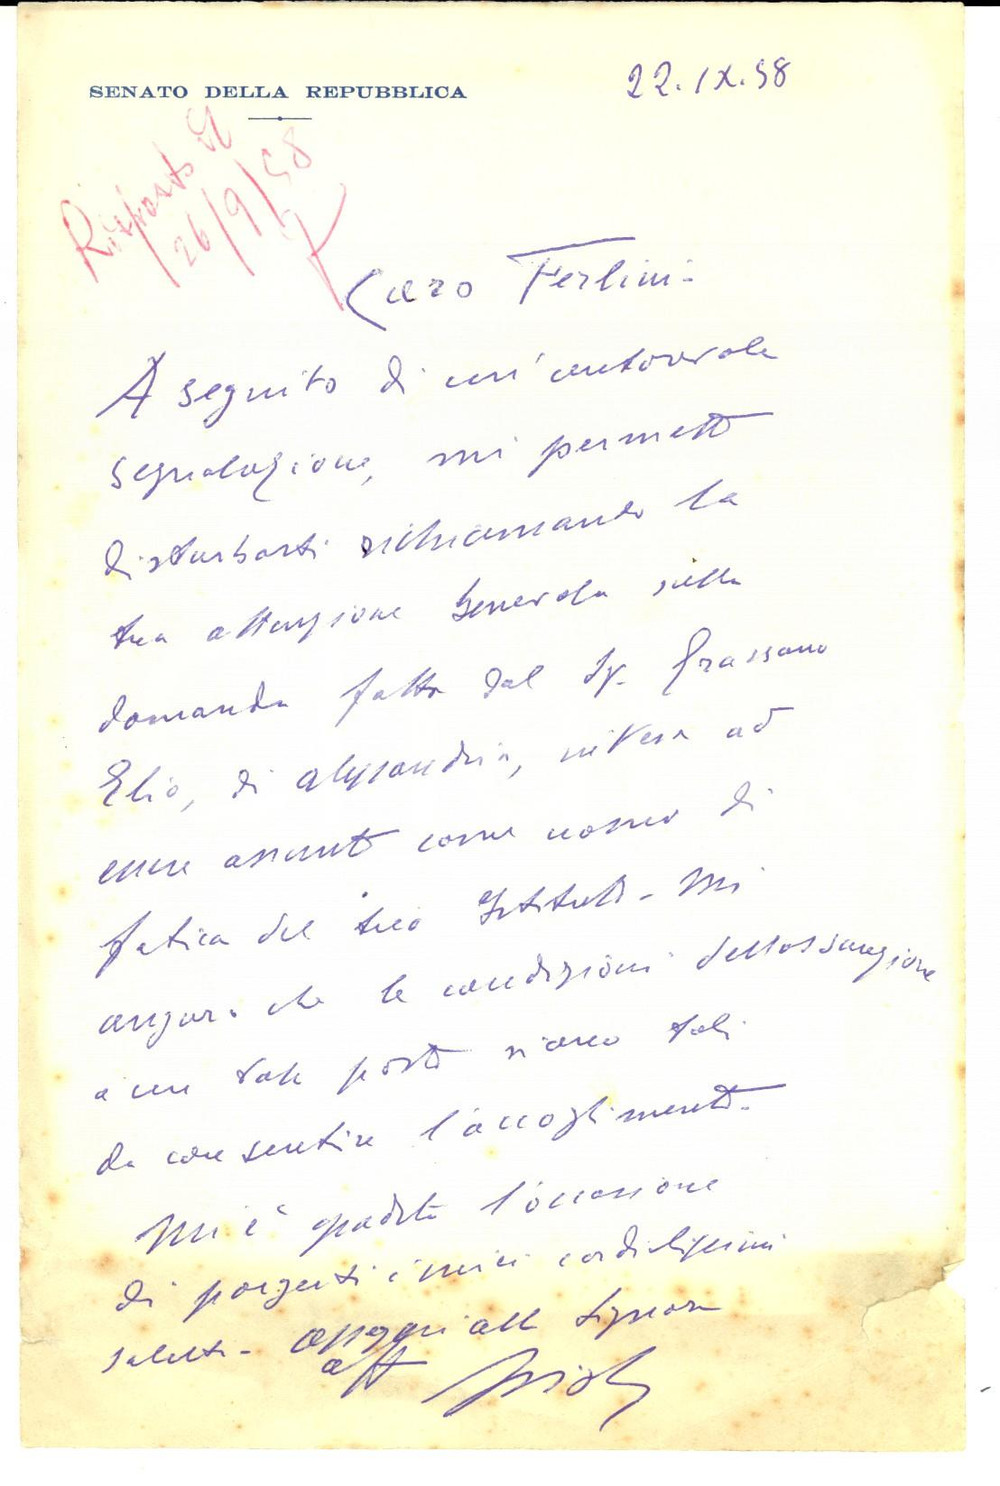 SENATO DELLA REPUBBLICA
22.IX.58
Risposto il
26/9/58
Caro Ferlini -
A seguito di un'autorevole
segnalazione, mi permetto
disturbarti richiamando la
tua attenzione benevola sulla
domanda fatta dal Sig. Grassano
Elio, di Alessandria, intesa ad
essere assunto come uomo di
fatica del tuo Istituto - Mi
auguro che le condizioni dell'assunzione
a un tale posto siano tali
da consentire l'accoglimento -
Mi è gradita l'occasione
di porgerti i miei cordialissimi
saluti - Ossequi alla Signora
aff